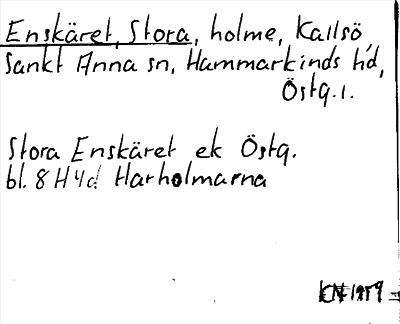 Enskäret, Stora, holme, Kallsö,
Sankt Anna sn, Hammarkinds hd,
Östg. l.
Stora Enskäret ek Östg.
bl. 8 H 4d Harholmarna
KN 1959